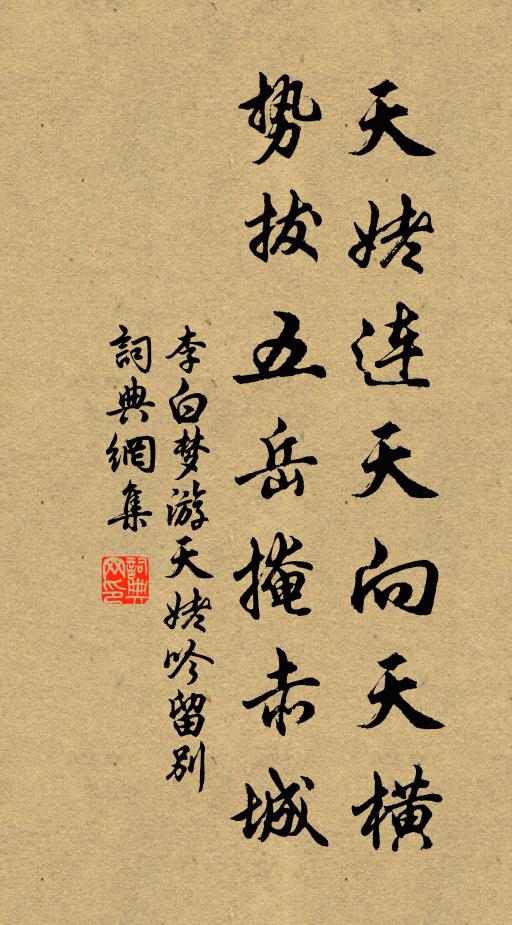 天姥连天向天横
势拔五岳掩赤城
李白梦游天姥吟留别
詞典網集
詞典
网印